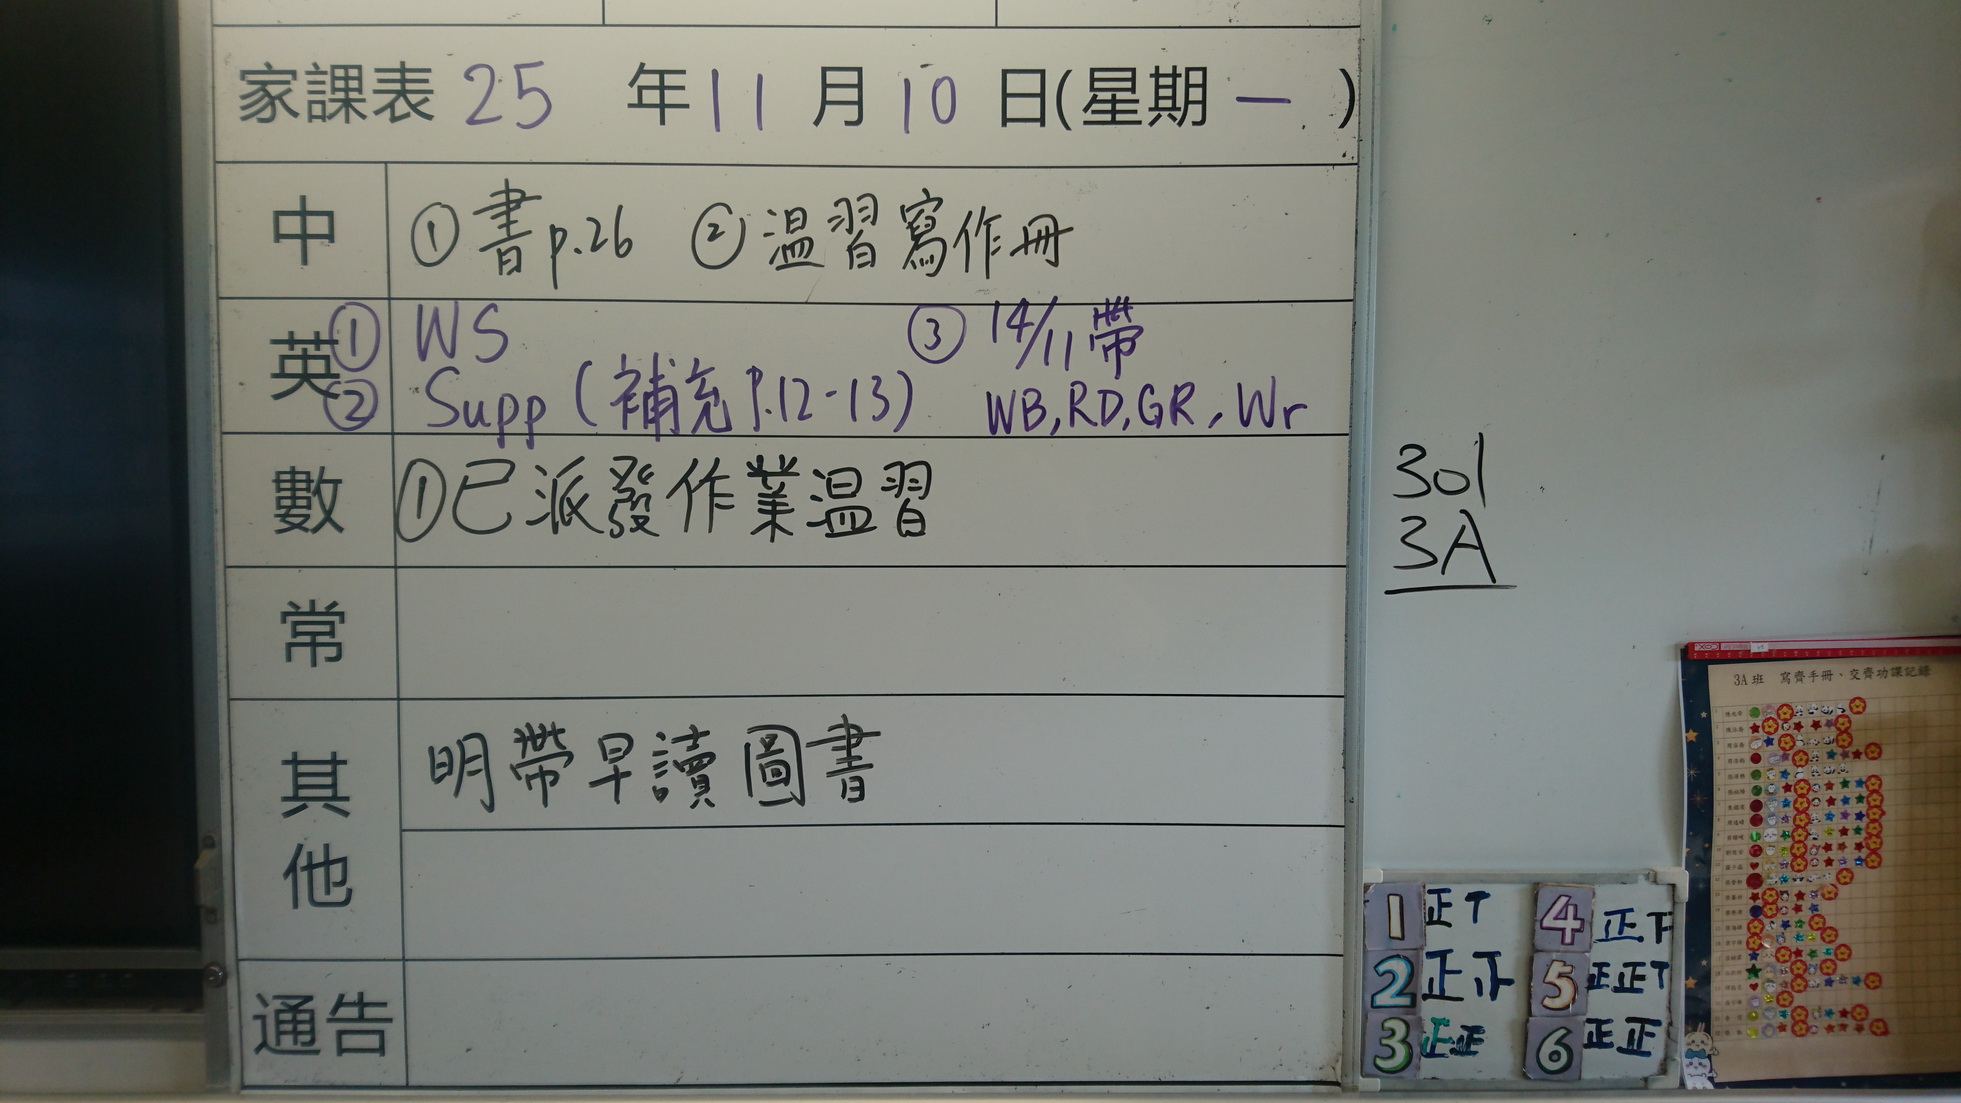 家課表 25 年 11 月 10 日(星期 一 )
中 ① 書 p.26 ② 温習寫作冊
英 ① WS ③ 14/11 帶
② Supp (補充 P.12-13) WB, RD, GR, Wr
數 ① 已派發作業温習
常
其他 明帶早讀圖書
通告
301
3A
3A 班 寫齊手冊、交齊功課記錄
1 正 4 正
2 正 5 正正
3 正正 6 正正